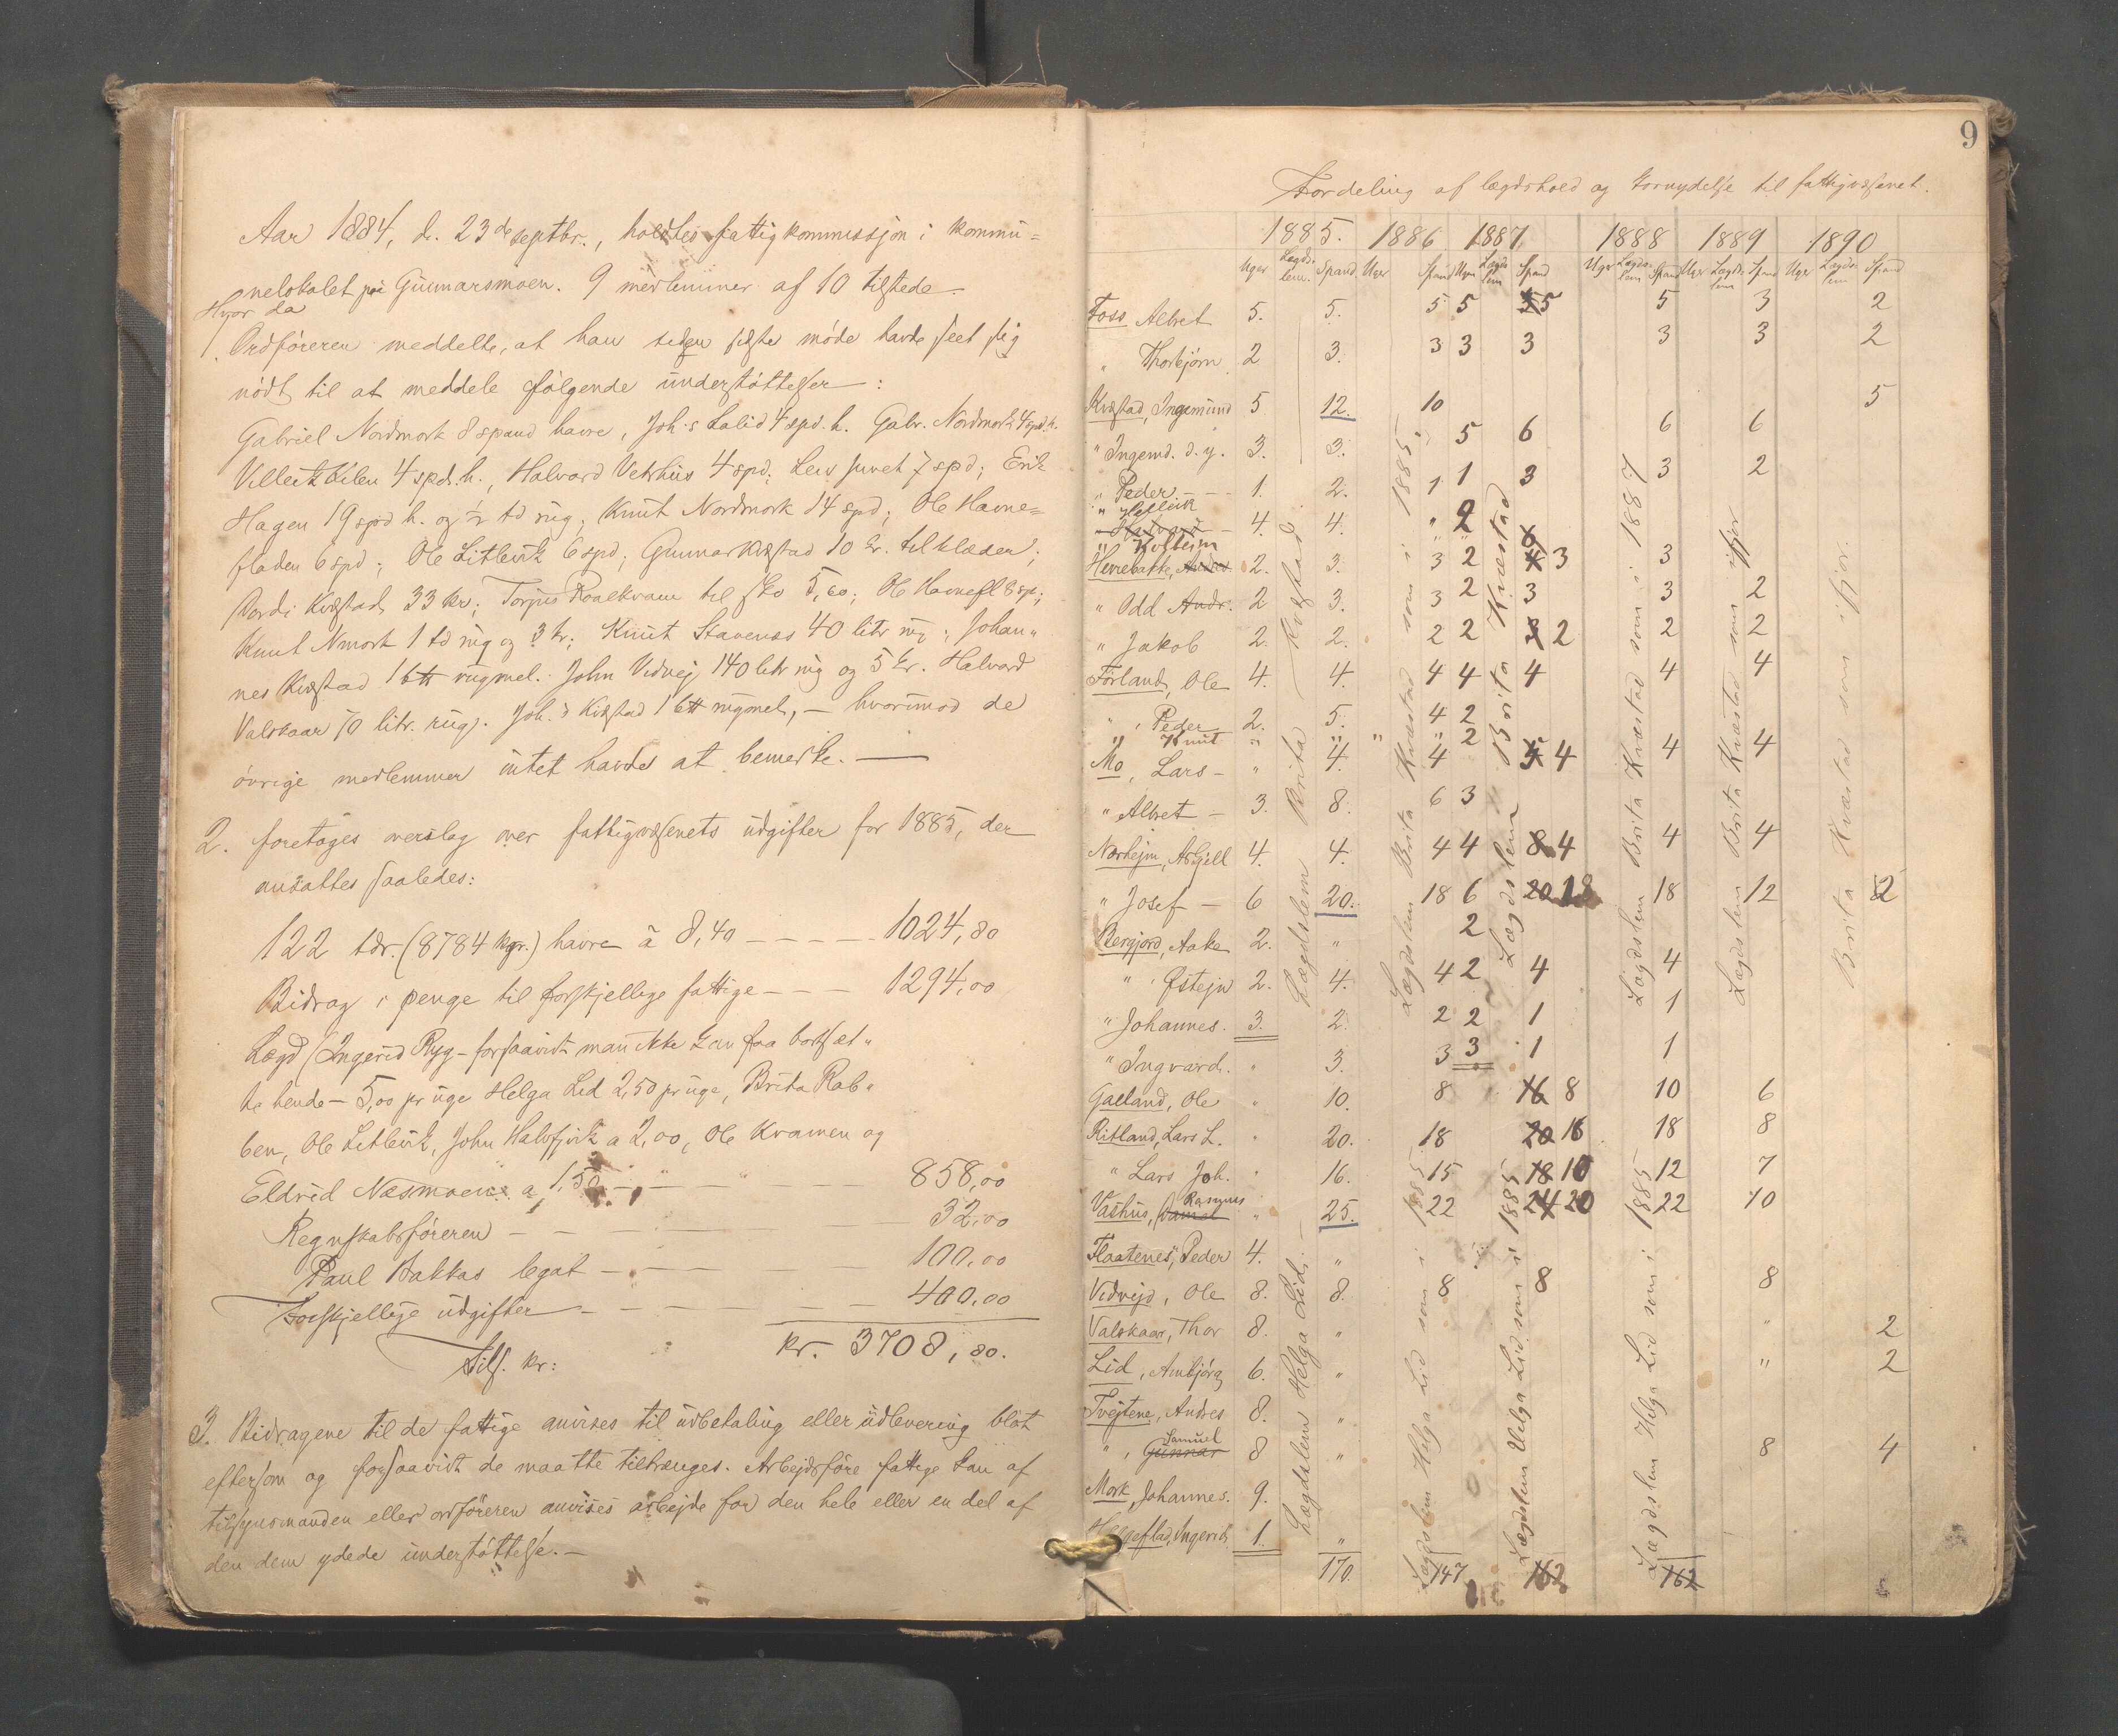 Aar 1884, d. 23de septbr., holdtes fattigkommissjon i kommu=
nelokalet paa Gunnarsmoen. 9 medlemmer af 10 tilstede.
Hvor da
1. Ordføreren meddelte, at han siden sidste møde havde seet sig
nødt til at meddele følgende understøttelser:
Gabriel Nordmork 8 spand havre, Joh.s Lalid 4 spd. h. Gabr. Nordmork 4 spd. h.
Kilen 4 spd. h., Halvord Vetrhus 4 spd; Lars Juvet 7 spd; Erik
Hagen 19 spd h. og ½ td rug; Knut Nordmork 14 spd; Ole Havne=
fladen 6 spd; Ole Litlevik 6 spd; Gunnar Kvæstad 10 kr. til klæder;
Kvæstad 33 kr; Torjus Raaekvam til sko 5,00; Ole Havnefl 8 sp;
Knut Nmork 1 td rug og 3 kr; Knut Stavenes 40 litr rug; Johan"
nes Kvæstad 1 btt rugmel. John Vidvej 140 litr rug og 5 kr. Halvard
Valskaar 70 litr. rug. Joh.s Kvæstad 1 btt rugmel, — hvorimod de
øvrige medlemmer intet havde at bemerke. —
2. foretoges overslag over fattigvæsenets udgifter for 1885, der
ansattes saaledes:
122 tdr. (8784 kgr.) havre à 8,40 — — — — 1024,80
Bidrag i penge til forskjellige fattige — — — 1294,00
Lægd (Ingerid Ryg - forsaavidt man ikke kan faa bortsæt"
te hende — 5,00 pr uge Helga Lid 2,50 pr uge, Brita Rab"
ben, Ole Litlevik, John Halvfjvik a 2,00, Ole Kvamen og
Eldrid Næsmoen a 1,50 — " — " — 858,00
Regnskabsføreren — — — — 32,00
Paul Bakkas legat — — — — 100,00
Forskjellige udgifter — — — — 400,00
Tils. kr: kr. 3708,80.
3. Bidragene til de fattige anvises til udbetaling eller udlevering blot
eftersom og forsaavidt de maatte tiltrænges. Arbejdsføre fattige kan af
tilsynsmanden eller ordføreren anvises arbejde for den hele eller en del af
den dem ydede understøttelse. —
9
Fordeling af lægdshold og kornydelse til fattigvæsenet.
1885. 1886 1887 1888 1889 1890
Uger Lægds-lem. Spand Uger Spand Uger Lægds lem Spand Uger Lægds-lem Spand Uger Lægds-lem Spand Uger Lægds-lem Spand
Foss Albret 5. 5. 5 5 5 5 3 2
" Thorbjørn 2 3. 3 3 3 3 3 2
Kvæstad, Ingemund 5 12. 10 5
" Ingemd. d. y. 3. 3. " 5 6 6 6
" Peder — 1. 2. 1 1 3 3 2
" Helleik
" 4. 4. " 2
" Kolbein 6
Herrebakke, 2. 3. 3 2 4 3 3
" Odd Andr. 2 3. 3 2 3 3 2
" Jakob 2. 2. 2 2 2 2 2
Førland, Ole 4. 4. 4 4 4 4 4
" , Peder 2. 5. 4 2
" Knut " " " " 2
Mo, Lars — " 4. 4 5 4 4 4
" Albret — 3. 8. 6 3
Nærhejm, Asgjell 4. 4. 4 4 8 4 4 4
" Josef — 6 20. 18 6 20 18 18 12 2
Bergjord, Aake 2. " 2
" , Østejn 2. 4. 4 2 4 4
" Johannes. 3. 2. 2 2 1 1
" Ingvard. " 3. 3 3 1 1
Galland, Ole " 10. 8 16 8 10 6
Ritland, Lars L. " 20. 18 20 16 18 8
" Lars Joh. " 16. 15 18 10 12 7
Rasmus
Vashus, Daniel " 25. 22 24 20 22 10
Flaatenes, Peder 4. "
Vidvejd, Ole 8. 8. 8 8 8
Valskaar, Thor 8. " " 2
Lid, Ambjørg 6. " " 2
Tvejtene, Andres 8. "
Samuel
" , Gunnar 8 " 8 4
Mork, Johannes. 9.
Ingerid 1. "
170. 147 162 162
Lægdslem Brita Kvæstad
Lægdslem Helga Lid.
Lægdslem Brita Kvæstad som i 1885.
Lægdslem Helga Lid som i 1885
Lægdslem Brita Kvæstad
Lægdslem Helga Lid som i 1885
Lægdslem Brita Kvæstad som i 1887
Lægdslem Helga Lid som i 1885
Lægdslem Brita Kvæstad som ifjor
Brita Kvæstad som ifjor.